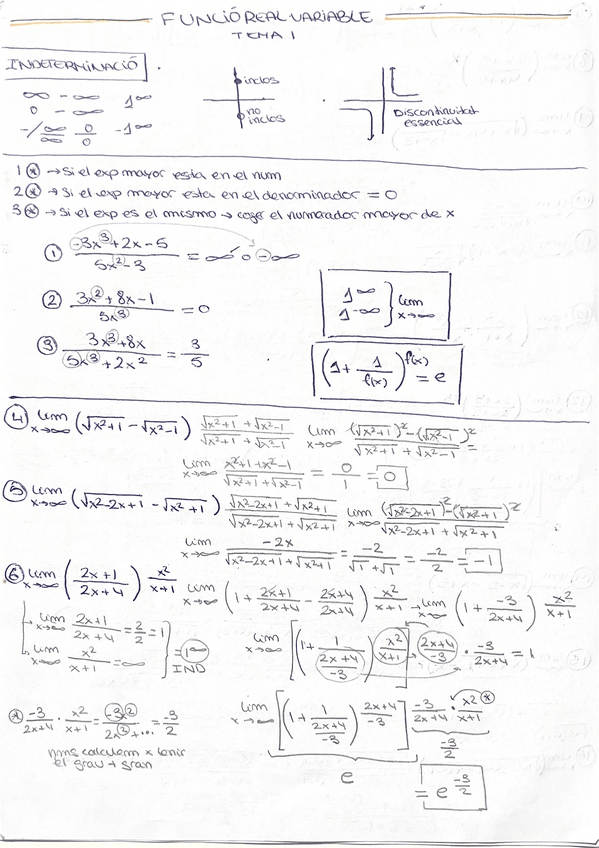 FUNCIÓ REAL VARIABLE
TEMA 1
INDETERMINACIÓ
∞ - ∞ 1^∞
0 · ∞
-/∞/∞ 0/0 -1^∞
inclòs
no inclòs
Discontinuitat
essencial
1 * → Si el exp mayor esta en el num
2 * → Si el exp mayor esta en el denominador = 0
3 * → Si el exp es el mismo → coger el numerador mayor de x
① (-3x^3+2x-5)/(5x^2-3) = ∞ o -∞
② (3x^2+8x-1)/(5x^3) = 0
③ (3x^3+8x)/(5x^3+2x^2) = 3/5
1^∞
1^-∞ } lim x→∞
(1 + 1/f(x))^f(x) = e
④ lim x→∞ (√x²+1 - √x²-1) (√x²+1 + √x²-1)/(√x²+1 + √x²-1) lim x→∞ ((√x²+1)² - (√x²-1)²)/(√x²+1 + √x²-1) =
lim x→∞ (x²+1+x²-1)/(√x²+1 + √x²-1) = 0/1 = 0
⑤ lim x→∞ (√x²-2x+1 - √x²+1) (√x²-2x+1 + √x²+1)/(√x²-2x+1 + √x²+1) lim x→∞ ((√x²-2x+1)² - (√x²+1)²)/(√x²-2x+1 + √x²+1)
lim x→∞ -2x/(√x²-2x+1 + √x²+1) = -2/(√1 + √1) = -2/2 = -1
⑥ lim x→∞ ((2x+1)/(2x+4)) x²/(x+1) lim x→∞ (1 + (2x+1)/(2x+4) - (2x+4)/(2x+4)) x²/(x+1) → lim x→∞ (1 + -3/(2x+4)) x²/(x+1)
lim x→∞ (2x+1)/(2x+4) = 2/2 = 1
lim x→∞ x²/(x+1) = ∞
= 1^∞
IND
lim x→∞ [(1 + 1/((2x+4)/-3)) x²/(x+1)] → (2x+4)/-3 · -3/(2x+4) = 1
* -3/(2x+4) · x²/(x+1) = -3x²/(2x²+...) = -3/2
nms calculem x tenir
el grau + gran
lim x→∞ [(1 + 1/((2x+4)/-3))^((2x+4)/-3)] -3/(2x+4) · x²/(x+1) *
-3/2
e
= e^(-3/2)